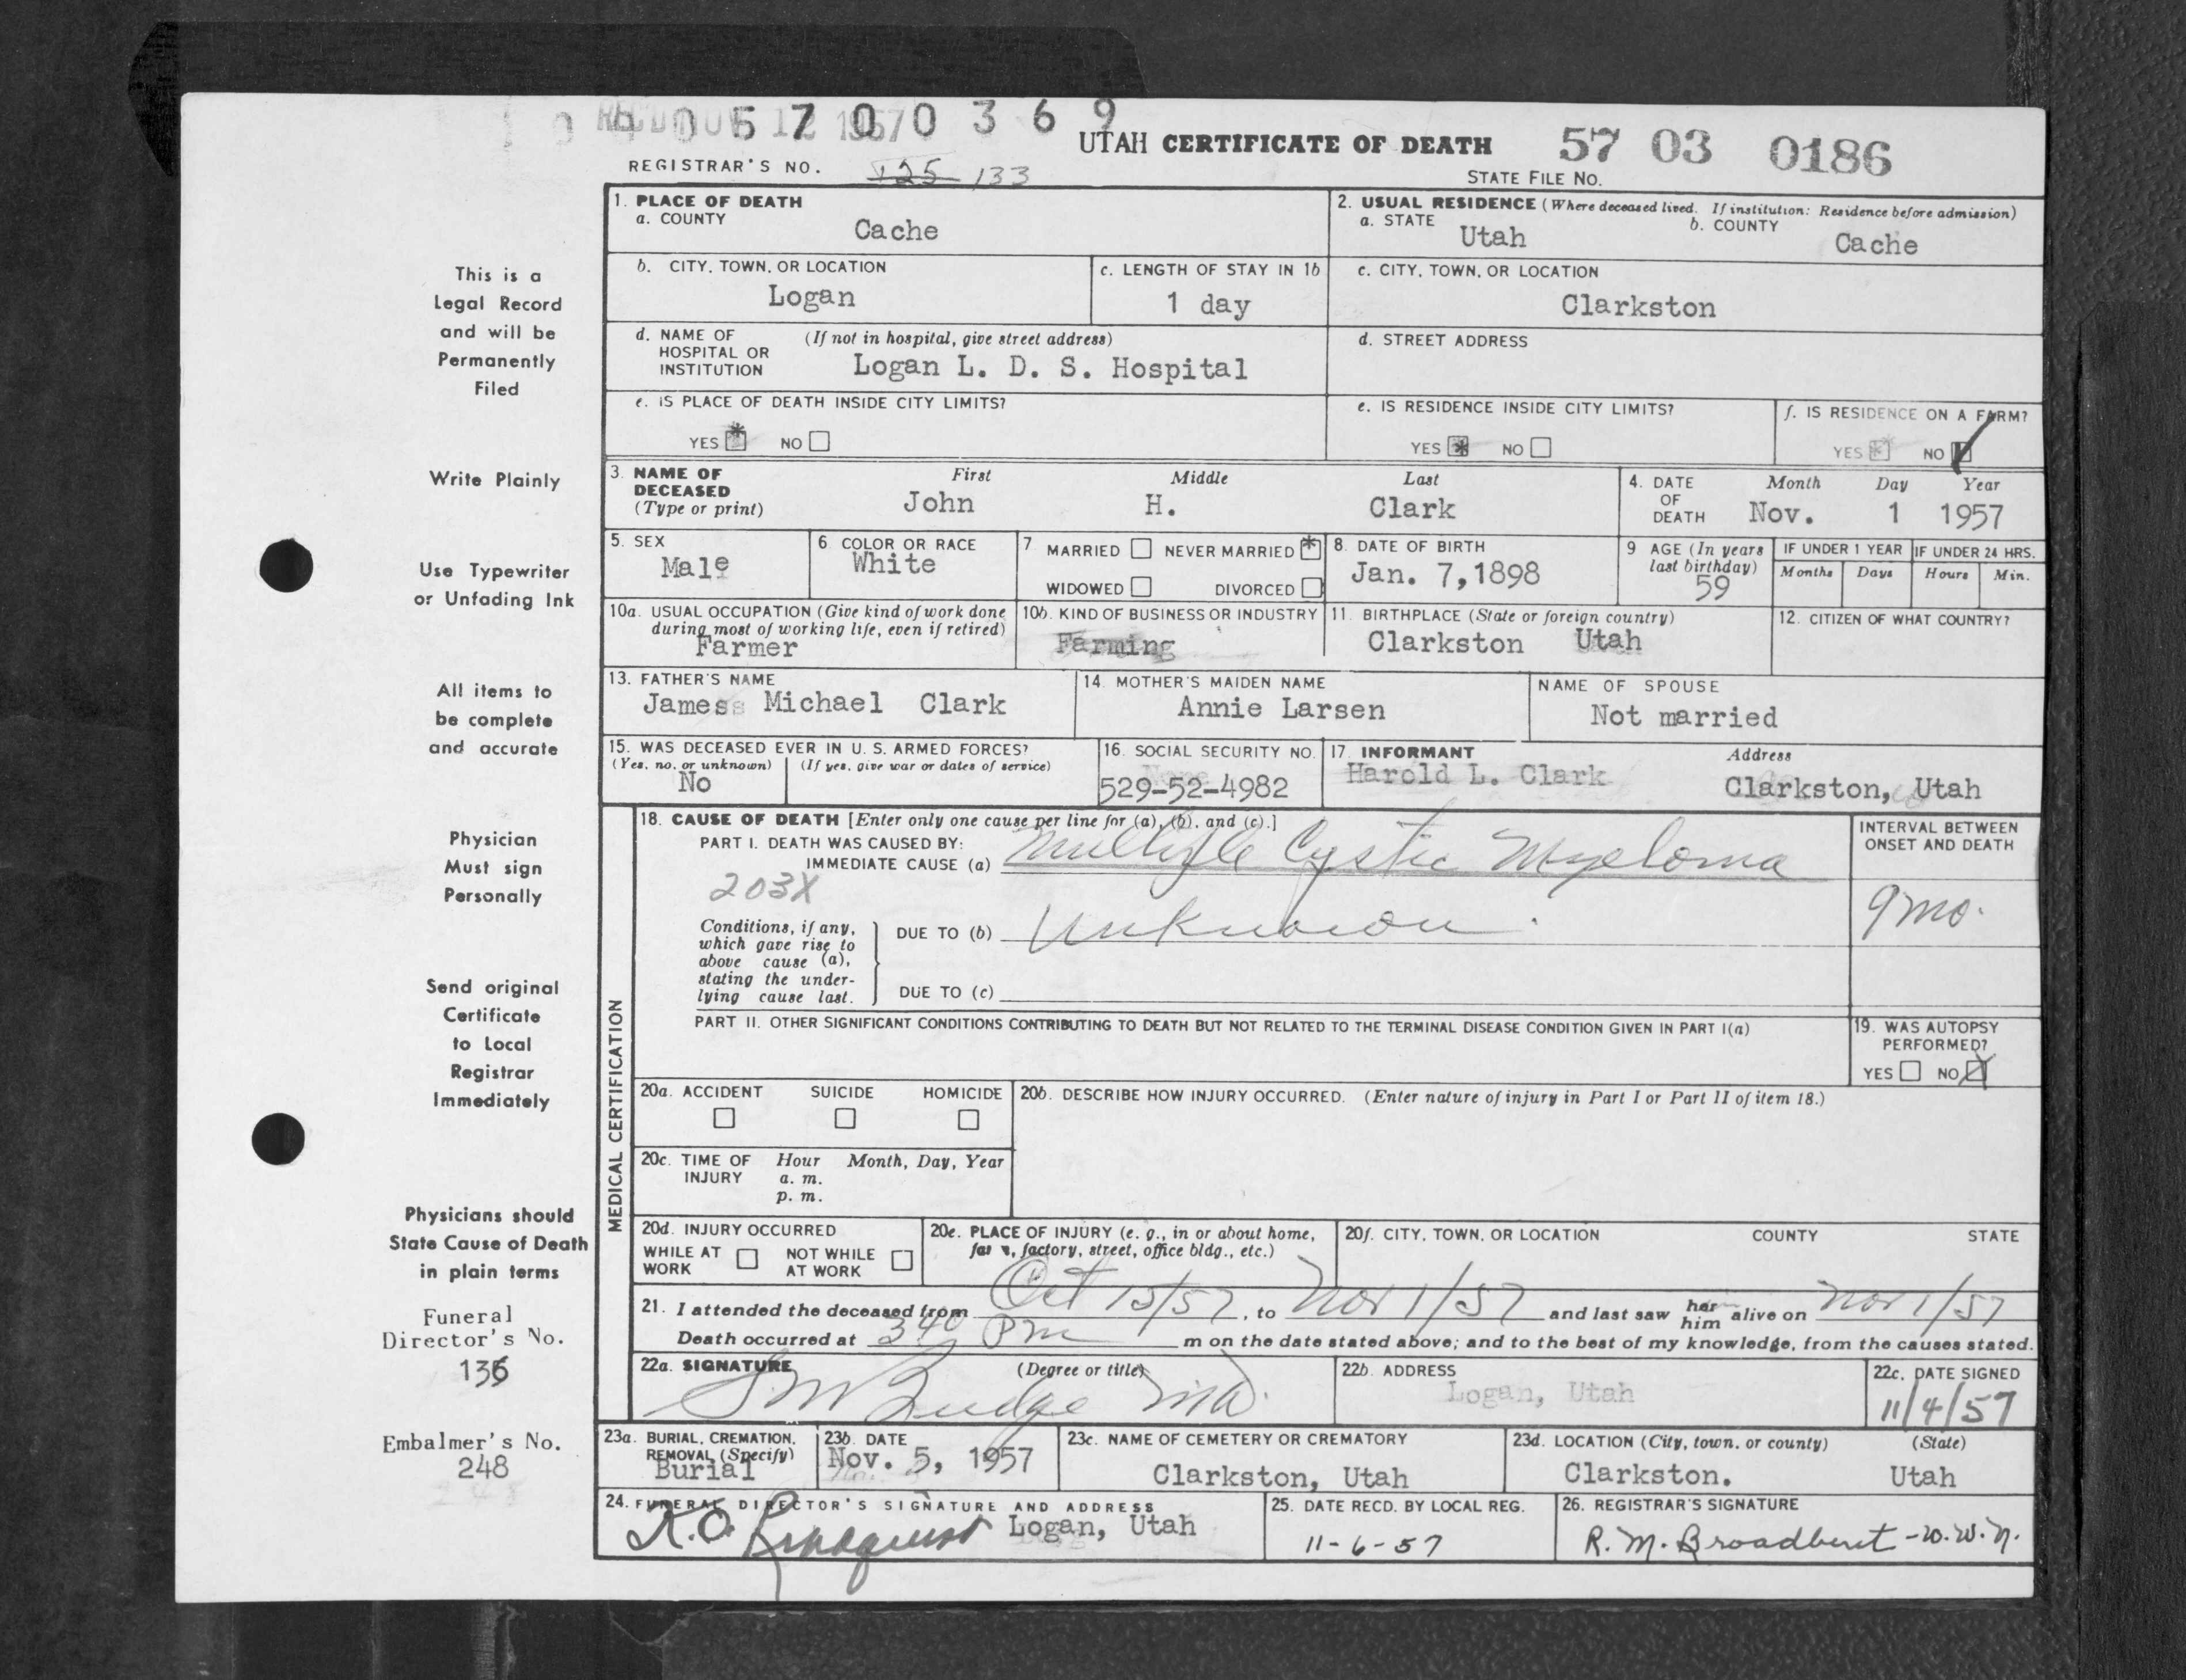 REC'D NOV 12 1957
0 5 7 0 0 3 6 9
UTAH CERTIFICATE OF DEATH
57 03 0186
REGISTRAR'S NO. 125 133
STATE FILE NO.
1. PLACE OF DEATH
a. COUNTY
Cache
2. USUAL RESIDENCE (Where deceased lived. If institution: Residence before admission)
a. STATE
Utah
b. COUNTY
Cache
b. CITY, TOWN, OR LOCATION
Logan
c. LENGTH OF STAY IN 1b
1 day
c. CITY, TOWN, OR LOCATION
Clarkston
d. NAME OF HOSPITAL OR INSTITUTION
(If not in hospital, give street address)
Logan L. D. S. Hospital
d. STREET ADDRESS
e. IS PLACE OF DEATH INSIDE CITY LIMITS?
YES * NO
e. IS RESIDENCE INSIDE CITY LIMITS?
YES * NO
f. IS RESIDENCE ON A FARM?
YES NO
3. NAME OF DECEASED (Type or print)
First Middle Last
John H. Clark
4. DATE OF DEATH
Month Day Year
Nov. 1 1957
5. SEX
Male
6 COLOR OR RACE
White
7 MARRIED NEVER MARRIED *
WIDOWED DIVORCED
8. DATE OF BIRTH
Jan. 7,1898
9 AGE (In years last birthday)
59
IF UNDER 1 YEAR
Months Days
IF UNDER 24 HRS.
Hours Min.
10a. USUAL OCCUPATION (Give kind of work done during most of working life, even if retired)
Farmer
10b. KIND OF BUSINESS OR INDUSTRY
Farming
11. BIRTHPLACE (State or foreign country)
Clarkston Utah
12. CITIZEN OF WHAT COUNTRY?
13. FATHER'S NAME
James Michael Clark
14. MOTHER'S MAIDEN NAME
Annie Larsen
NAME OF SPOUSE
Not married
15. WAS DECEASED EVER IN U. S. ARMED FORCES?
(Yes, no, or unknown) (If yes, give war or dates of service)
No
16. SOCIAL SECURITY NO.
None
529-52-4982
17. INFORMANT Address
Harold L. Clark
Clarkston, Utah
MEDICAL CERTIFICATION
18. CAUSE OF DEATH [Enter only one cause per line for (a), (b), and (c).]
PART I. DEATH WAS CAUSED BY:
IMMEDIATE CAUSE (a) Multiple Cystic Myeloma
203X
INTERVAL BETWEEN ONSET AND DEATH
9 mo.
Conditions, if any, which gave rise to above cause (a), stating the underlying cause last.
DUE TO (b) Unknown.
DUE TO (c)
PART II. OTHER SIGNIFICANT CONDITIONS CONTRIBUTING TO DEATH BUT NOT RELATED TO THE TERMINAL DISEASE CONDITION GIVEN IN PART I(a)
19. WAS AUTOPSY PERFORMED?
YES NO X
20a. ACCIDENT SUICIDE HOMICIDE
20b. DESCRIBE HOW INJURY OCCURRED. (Enter nature of injury in Part I or Part II of item 18.)
20c. TIME OF INJURY
Hour Month, Day, Year
a. m.
p. m.
20d. INJURY OCCURRED
WHILE AT WORK NOT WHILE AT WORK
20e. PLACE OF INJURY (e. g., in or about home, farm, factory, street, office bldg., etc.)
20f. CITY, TOWN, OR LOCATION COUNTY STATE
21. I attended the deceased from Oct 15/57, to Nov 1/57 and last saw her him alive on Nov 1/57
Death occurred at 340 Pm m on the date stated above; and to the best of my knowledge, from the causes stated.
22a. SIGNATURE (Degree or title)
S M Budge MD.
22b. ADDRESS
Logan, Utah
22c. DATE SIGNED
11/4/57
23a. BURIAL, CREMATION, REMOVAL (Specify)
Burial
23b. DATE
Nov. 5, 1957
23c. NAME OF CEMETERY OR CREMATORY
Clarkston, Utah
23d. LOCATION (City, town, or county) (State)
Clarkston. Utah
24. FUNERAL DIRECTOR'S SIGNATURE AND ADDRESS
K.O. Lindquist Logan, Utah
25. DATE RECD. BY LOCAL REG.
11-6-57
26. REGISTRAR'S SIGNATURE
R. M. Broadbent - W. W. N.
This is a
Legal Record
and will be
Permanently
Filed
Write Plainly
Use Typewriter
or Unfading Ink
All items to
be complete
and accurate
Physician
Must sign
Personally
Send original
Certificate
to Local
Registrar
Immediately
Physicians should
State Cause of Death
in plain terms
Funeral
Director's No.
136
Embalmer's No.
248